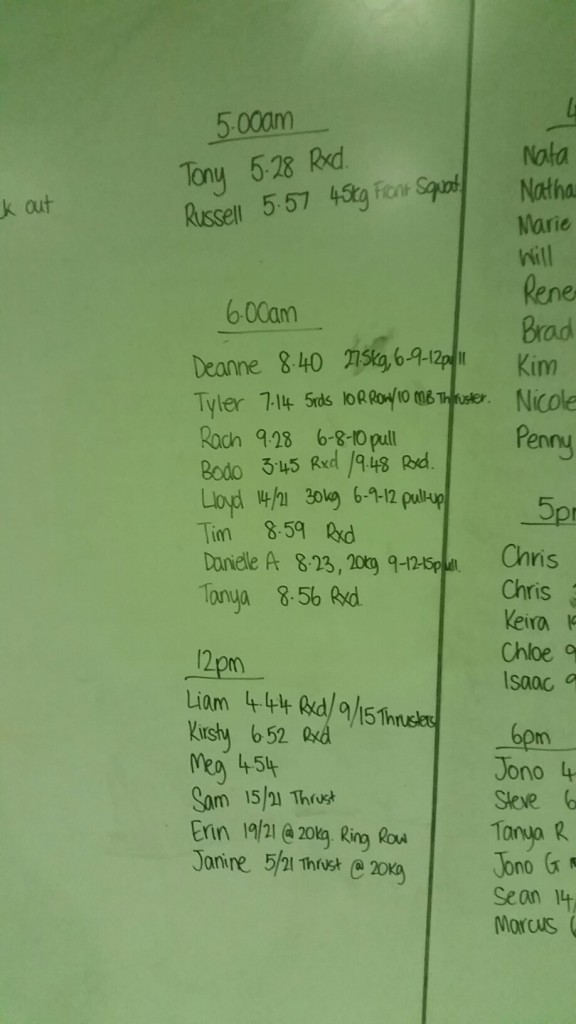 k out
5.00am
Tony 5.28 Rxd.
Russell 5.57 45kg Front Squat.
6.00am
Deanne 8.40 27.5kg, 6-9-12pull
Tyler 7.14 5rds 10R Row/10 MB Thruster.
Rach 9.28 6-8-10pull
Bodo 3.45 Rxd /9.48 Rxd.
Lloyd 14/21 30kg 6-9-12 pull-up
Tim 8.59 Rxd
Danielle A 8.23, 20kg 9-12-15pull.
Tanya 8.56 Rxd
12pm
Liam 4.44 Rxd/9/15Thrusters
Kirsty 6.52 Rxd
Meg 4.54
Sam 15/21 Thrust
Erin 19/21 @ 20kg. Ring Row
Janine 5/21 Thrust @ 20kg
4
Nata
Natha
Marie
Will
Rene
Brad
Kim
Nicole
Penny
5p
Chris
Chris
Keira
Chloe 9
Isaac 9
6pm
Jono 4
Steve 6
Tanya R
Jono G
Sean 14/
Marcus